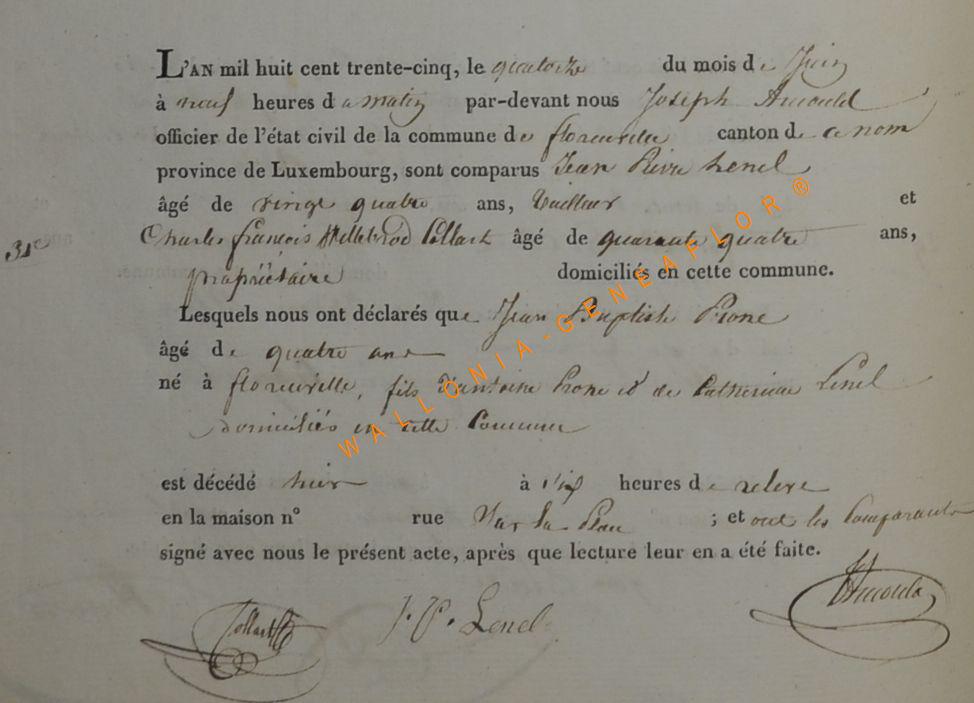 L'AN mil huit cent trente-cinq, le quatorze du mois de Juin
à neuf heures d a matin par-devant nous Joseph Arnould
officier de l'état civil de la commune de florenville canton d. ce nom
province de Luxembourg, sont comparus Jean Pierre Lenel
âgé de vingt quatre ans, tailleur et
31e Charles françois Willebrod Collart âgé de quarante quatre ans,
propriétaire domiciliés en cette commune.
Lesquels nous ont déclarés que Jean Baptiste Prone
âgé de quatre ans
né à florenville, fils d'antoine Prone et de Catherine Lenel
domiciliés en cette Commune
est décédé hier à six heures de relevé
en la maison n° rue ; et ont les Comparants
signé avec nous le présent acte, après que lecture leur en a été faite.
Collart J. P. Lenel JArnould
WALLONIA-GENEAFLOR®